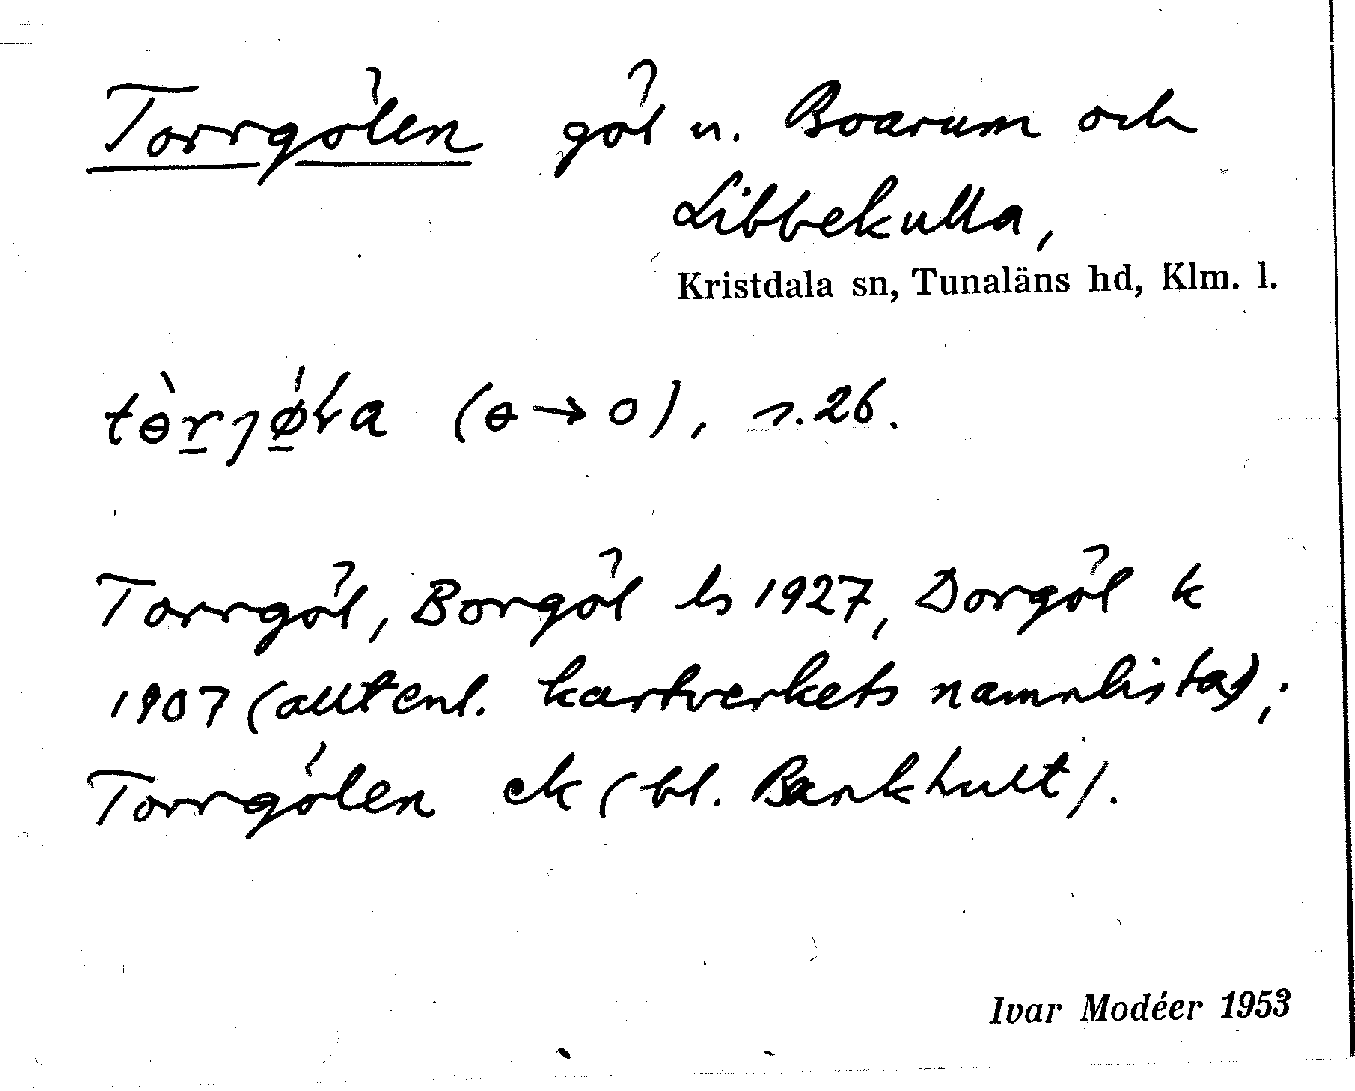 Torrgölen göl n. Boarum och
Libbekulla,
Kristdala sn, Tunaläns hd, Klm. l.
(ɵ → o), s. 26.
Torrgöl, Borgöl ls 1927, Dorgöl k
1907 (allt enl. kartverkets namnlista);
Torrgölen ek (bl. Bankhult).
Ivar Modéer 1953